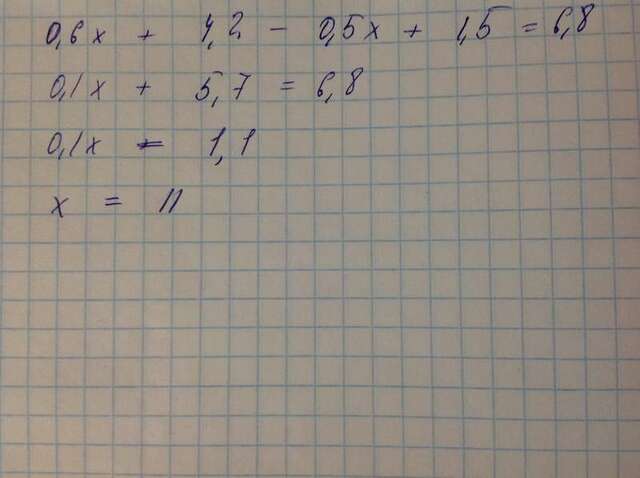 0,6x + 4,2 - 0,5x + 1,5 = 6,8
0,1x + 5,7 = 6,8
0,1x = 1,1
x = 11